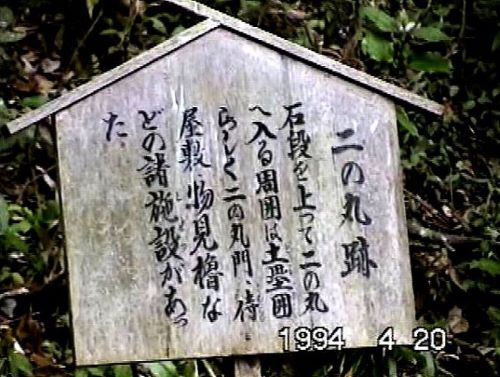 二の丸跡
石段を上って二の丸
へ入る周囲は土塁囲
らしく二の丸門、侍
屋敷、物見櫓な
どの諸施設があっ
た、
1994 4 20